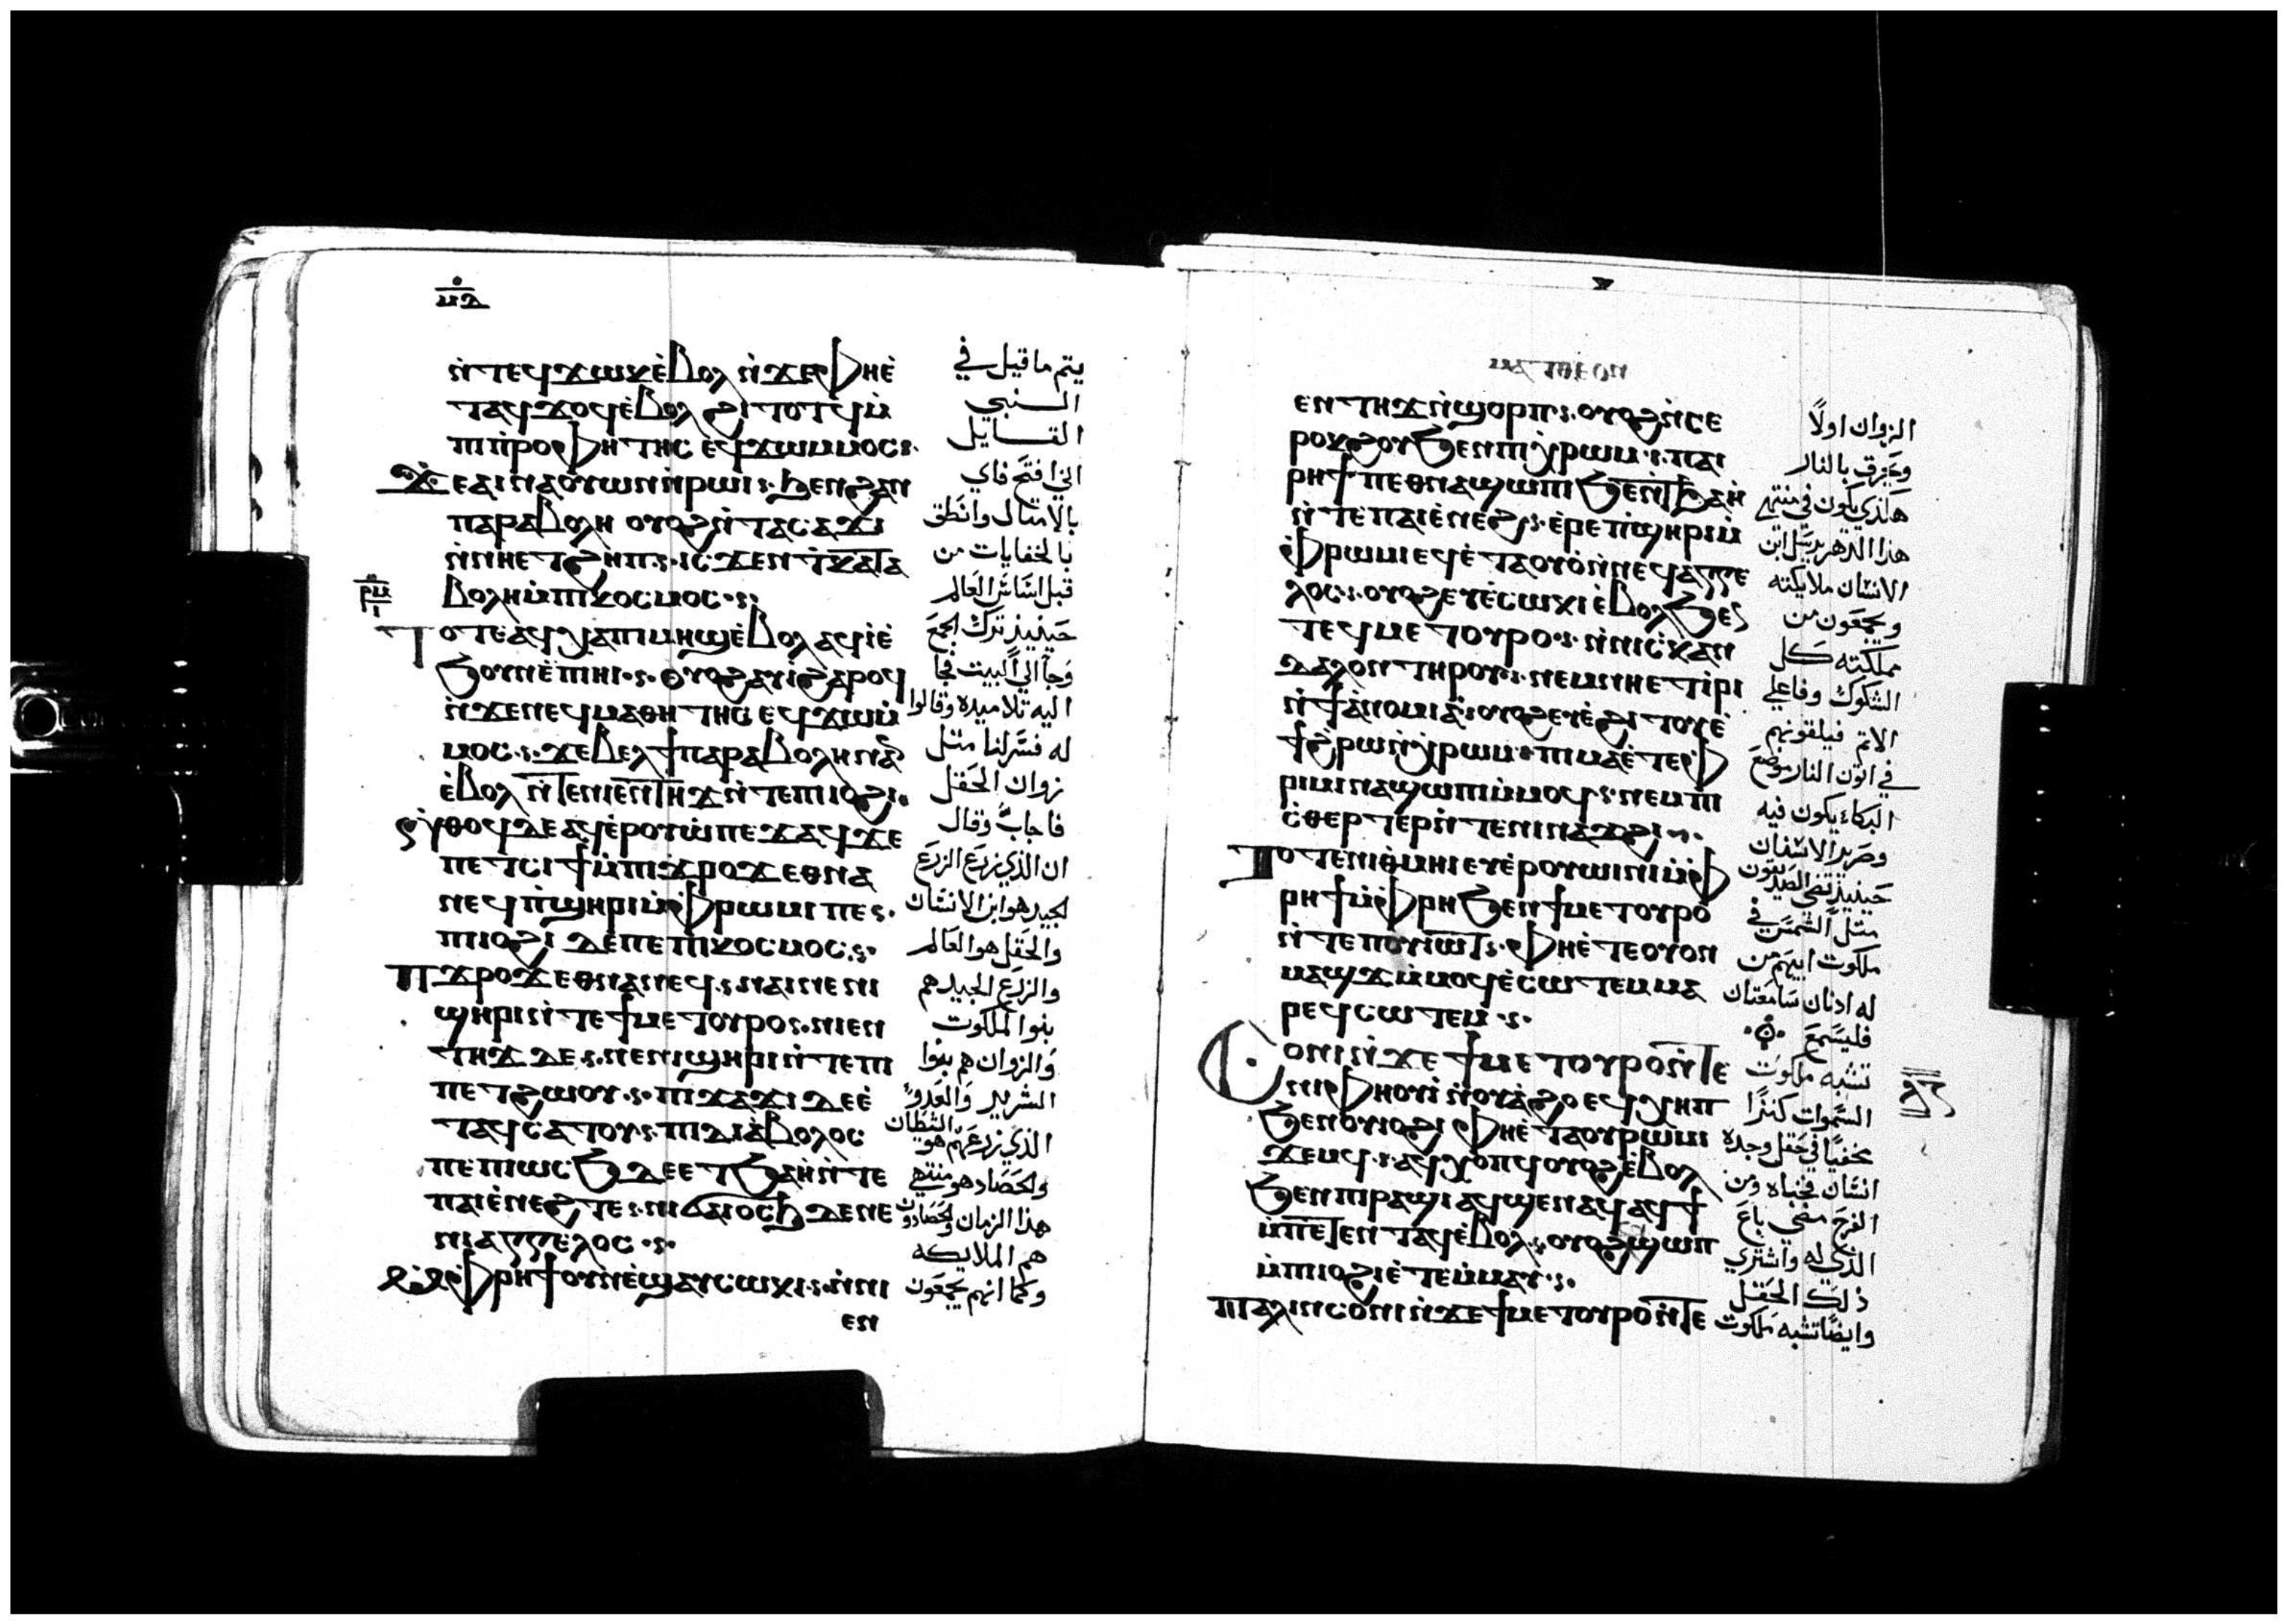 ⲙⲇ
ⲛ̀ⲧⲉϥϫⲱⲕⲉ̀ⲃⲟⲗ ⲛ̀ϫⲉⲫⲏⲉ̀
ⲧⲁϥϫⲟϥⲉ̀ⲃⲟⲗ ϩⲓⲧⲟⲧϥⲙ̀
ⲡⲓⲡⲣⲟⲫⲏⲧⲏⲥ ⲉϥϫⲱⲙⲙⲟⲥ
ϫⲉⲁⲓⲛⲁⲟⲩⲱⲛⲛ̀ⲣⲱⲓ ϧⲉⲛϩⲁⲛ
ⲡⲁⲣⲁⲃⲟⲗⲏ ⲟⲩⲟϩⲛ̀ⲧⲁⲥⲁϫⲓ
ⲛ̀ⲛⲏⲉⲧϩⲏⲡ ⲓⲥϫⲉⲛϯⲕⲁⲧⲁ
ⲃⲟⲗⲏⲙ̀ⲡⲓⲕⲟⲥⲙⲟⲥ
ⲧⲟⲧⲉⲁϥⲭⲁⲡⲓⲙⲏϣⲉ̀ⲃⲟⲗ ⲁϥⲓⲉ̀
ϧⲟⲩⲛⲉ̀ⲡⲓⲏⲓ ⲟⲩⲟϩⲁⲩⲓ̀ϩⲁⲣⲟϥ
ⲛ̀ϫⲉⲛⲉϥⲙⲁⲑⲏⲧⲏⲥ ⲉϥϫⲱⲙ̀
ⲙⲟⲥ ϫⲉⲃⲉⲗϯⲡⲁⲣⲁⲃⲟⲗⲏⲛⲁⲛ
ⲉ̀ⲃⲟⲗ ⲛ̀ⲧⲉⲛⲓⲉⲛⲧⲏϫ ⲛ̀ⲧⲉⲡⲓⲓⲟϩⲓ
ⲛ̀ⲑⲟϥⲇⲉⲁϥⲉⲣⲟⲩⲱ̀ⲡⲉϫⲁϥϫⲉ
ⲡⲉⲧⲥⲓϯⲙ̀ⲡⲓϫⲣⲟϫⲉⲑⲛⲁ
ⲛⲉϥⲡ̀ϣⲏⲣⲓⲙ̀ⲫⲣⲱⲙⲓ ⲡⲉ
ⲡⲓⲓⲟϩⲓ ⲇⲉⲡⲉ ⲡⲓⲕⲟⲥⲙⲟⲥ
ⲡϫⲣⲟϫⲉⲑⲛⲁⲛⲉϥ ⲛⲁⲓⲛⲉⲛⲓ
ϣⲏⲣⲓⲛ̀ⲧⲉϯⲙⲉⲧⲟⲩⲣⲟ ⲛⲓⲉⲛ
ⲧⲏϫ ⲇⲉ ⲛⲉⲛⲓϣⲏⲣⲓⲛ̀ⲧⲉⲡⲓ
ⲡⲉⲧϩⲱⲟⲩ ⲡⲓϫⲁϫⲓ ⲇⲉⲉ̀
ⲧⲁϥⲥⲁⲧⲟⲩ ⲡⲓⲇⲓⲁ̀ⲃⲟⲗⲟⲥ
ⲡⲉ ⲡⲓⲱⲥϧ ⲇⲉⲉ ⲧϧⲁⲏ̀ⲛ̀ⲧⲉ
ⲡⲁⲓⲉ̀ⲛⲉϩ ⲧⲉ ⲛⲓϭⲁⲓⲟⲥϧ ⲇⲉⲛⲉ
ⲛⲓⲁⲅⲅⲉⲗⲟⲥ
ⲙ̀ⲫⲣⲏϯⲟⲩⲛⲉ̀ϣⲁⲩⲥⲱⲕⲓ ⲛ̀ⲛⲓ
ⲉⲛ
يتم ما قيل في
النبي
القايل
اني افتح فاي
بالامثال وانطق
بالخفايات من
قبل اساس العالم
حينيذ ترك الجمع
وجا الي البيت فجا
اليه تلاميذه وقالوا
له فسر لنا مثل
زوان الحقل
فاجاب وقال
ان الذي زرع الزرع
الجيد هو ابن الانسان
والحقل هو العالم
والزرع الجيد هم
بنوا الملكوت
والزوان هم بنوا
الشرير والعدو
الذي زرعهم هو الشيطان
والحصاد هو منتهي
هذا الزمان والحصادون
هم الملايكه
وكما انهم يجمعون
ⲙⲁⲧⲑⲉⲟⲛ
ⲉⲛⲧⲏϫ ⲛ̀ϣⲟⲣⲡ ⲟⲩⲟϩⲛ̀ⲥⲉ
ⲣⲟⲕϩⲟⲩϧⲉⲛⲡⲓⲭⲣⲱⲙ ⲡⲁⲓ
ⲣⲏϯⲡⲉⲑⲛⲁϣⲱⲡⲓ ϧⲉⲛⲧϧⲁⲏ̀
ⲛ̀ⲧⲉⲡⲁⲓⲉ̀ⲛⲉϩ ⲉ̀ⲣⲉⲡ̀ϣⲏⲣⲓⲙ̀
ⲫⲣⲱⲙⲓⲉϥⲉ̀ⲧⲁⲟⲩⲟ̀ⲛ̀ⲛⲉϥⲁⲅⲅⲉ
ⲗⲟⲥ ⲟⲩⲟϩⲉⲩⲉ̀ⲥⲱⲕⲓⲉ̀ⲃⲟⲗϧⲉⲛ
ⲧⲉϥⲙⲉⲧⲟⲩⲣⲟ ⲛ̀ⲛⲓⲥ̀ⲕⲁⲛ
ⲇⲁⲗⲟⲛ ⲧⲏⲣⲟⲩ ⲛⲉⲙⲛⲏⲉⲧⲓ̀ⲣⲓ
ⲛ̀ϯⲁ̀ⲛⲟⲙⲓⲁ ⲟⲩⲟϩⲉⲩⲉ̀ϩⲓⲧⲟⲩⲉ̀
ϯϩ̀ⲣⲱⲛ̀ⲭⲣⲱⲙ ⲡⲓⲙⲁⲉ̀ⲧⲉⲫ
ⲣⲓⲙⲓⲛⲁϣⲱⲡⲓⲙ̀ⲙⲟϥ ⲛⲉⲙⲡⲓ
ⲥ̀ⲑⲉⲣⲧⲉⲣⲛ̀ⲧⲉⲛⲓⲛⲁϫϩⲓ
ⲧⲟⲧⲉⲛⲓⲑ̀ⲙⲏⲓⲉⲩⲉ̀ⲣⲟⲩⲱⲓⲛⲓⲙ̀ⲫ
ⲣⲏϯⲙ̀ⲫⲣⲏϧⲉⲛϯⲙⲉⲧⲟⲩⲣⲟ
ⲛ̀ⲧⲉⲡⲟⲩⲓⲱⲧ ⲫⲏⲉ̀ⲧⲉⲟⲩⲟⲛ
ⲙⲁϣϫⲙ̀ⲙⲟϥⲉ̀ⲥⲱⲧⲉⲙⲙⲁ
ⲣⲉϥⲥⲱⲧⲉⲙ
ⲥⲟⲛⲓⲛ̀ϫⲉϯⲙⲉⲧⲟⲩⲣⲟⲛ̀ⲧⲉ
ⲛⲓⲫⲏⲟⲩⲓ̀ ⲛ̀ⲟⲩⲁ̀ϩⲟ ⲉϥⲭⲏⲡ
ϧⲉⲛⲟⲩⲓⲟϩⲓ ⲫⲏⲉ̀ⲧⲁⲟⲩⲣⲱⲙⲓ
ϫⲉⲙϥ ⲁϥⲭⲟⲡϥⲟⲩⲟϩⲉ̀ⲃⲟⲗ
ϧⲉⲛⲡⲓⲣⲁϣⲓ ⲁϥϣⲉⲛⲁϥⲁϥϯ
ⲙ̀ⲡⲉⲧⲉⲛⲧⲁϥⲉ̀ⲃⲟⲗ ⲟⲩⲟϩϣⲱⲡ
ⲙ̀ⲡⲓⲓⲟϩⲓⲉ̀ⲧⲉⲙ̀ⲙⲁⲩ
ⲡⲁⲗⲓⲛⲥⲟⲛⲓⲛ̀ϫⲉϯⲙⲉⲧⲟⲩⲣⲟⲛ̀ⲧⲉ
الزوان اولاً
ويحرق بالنار
هكذي يكون في منتهي
هذا الدهر يرسل ابن
الانسان ملايكته
ويجمعون من
مملكته كل
الشكوك وفاعلي
الاثم فيلقونهم
في اتون النار موضع
البكاء يكون فيه
وصرير الاسنان
حينيذ تضي الصديقون
مثل الشمس في
ملكوت ابيهم من
له اذنان سامعتان
فليسمع
تشبه ملكوت
السموات كنزًا
مخفيًا في حقل وجده
انسان فخباه ومن
الفرح مضي باع
الذي له واشتري
ذلك الحقل
وايضًا تشبه ملكوت